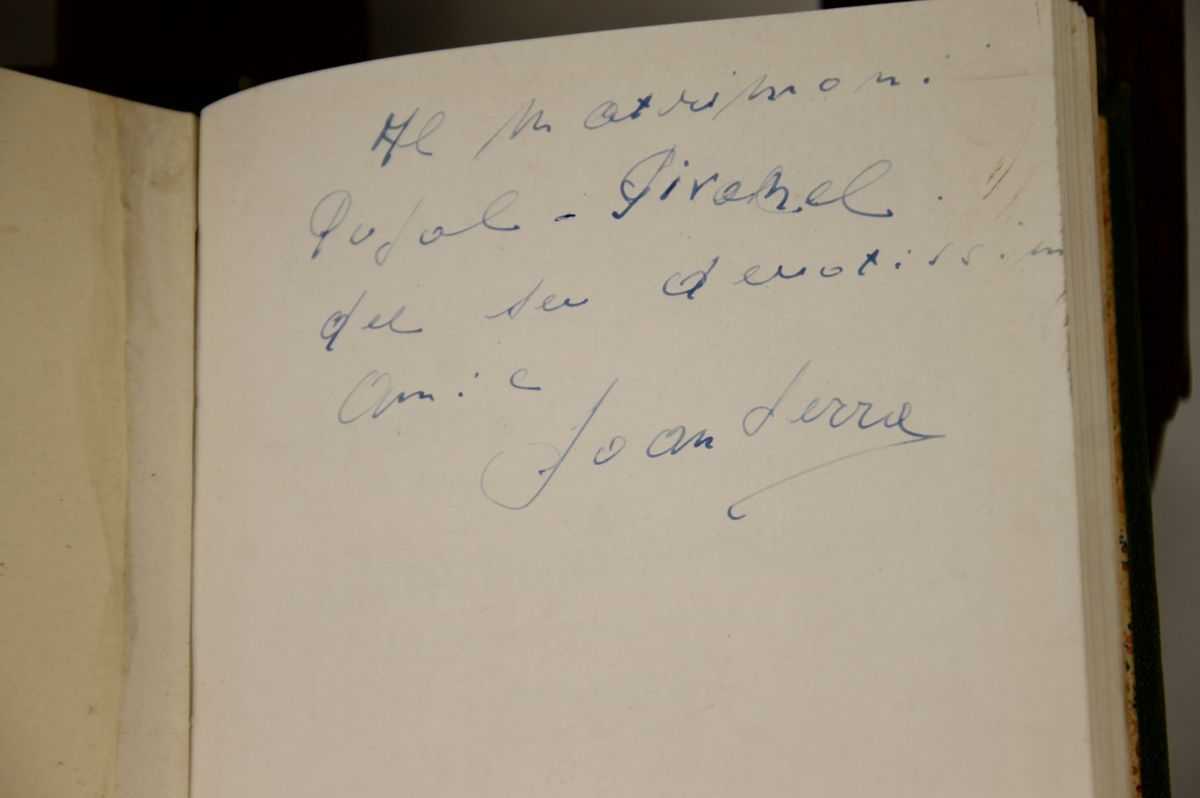 Al matrimoni
Pujol - Piramel
del seu devotissim
amic
Joan Serra